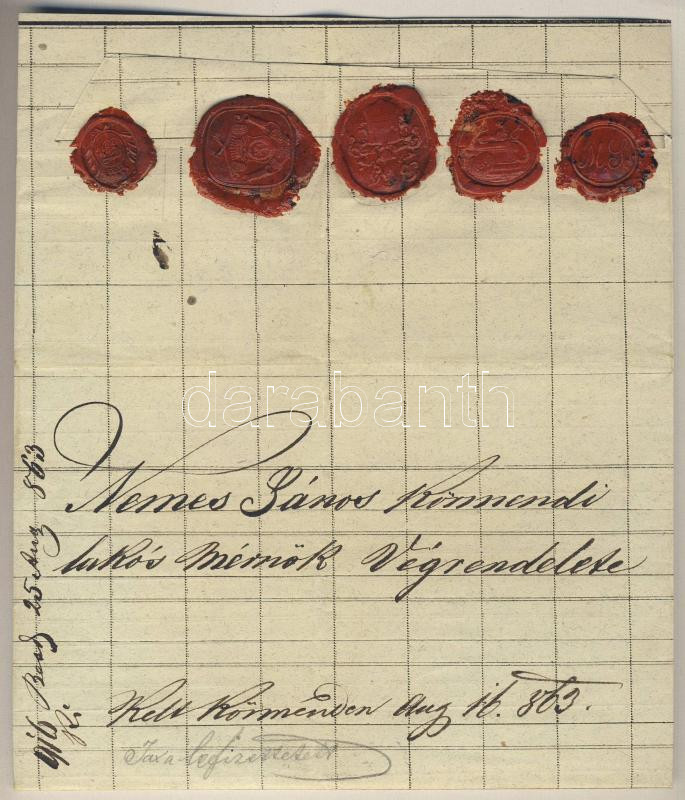 darabanth
Nemes János Körmendi
lakós Mérnök Végrendelete
Kelt Körmenden Aug 16. 863.
Taxa lefizettetett
25 Aug 863